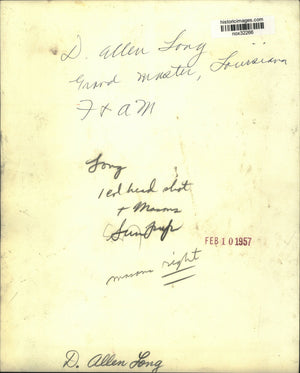 historicimages.com
nox32266
D. Allen Long
Grand Master, Louisiana
F & A M
Long
1 col head shot
+ Masons
FEB 1 0 1957
masons right
D. Allen Long